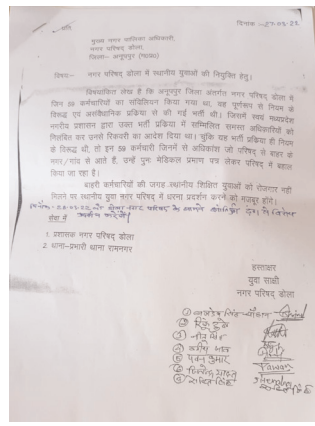 प्रति,
दिनाँक :-27-03-22
मुख्य नगर पालिका अधिकारी,
नगर परिषद् डोला,
जिला- अनूपपुर (म0प्र0)
विषय:- नगर परिषद् डोला में स्थानीय युवाओं की नियुक्ति हेतु।
विषयांकित लेख है कि अनूपपुर जिला अंतर्गत नगर परिषद् डोला में
जिन 59 कर्मचारियों का संविलियन किया गया था, वह पूर्णरूप से नियम के
विरूद्ध एवं असंवैधानिक प्रक्रिया से की गई भर्ती थी। जिसमें स्वयं मध्यप्रदेश
नगरीय प्रशासन द्वारा उक्त भर्ती प्रक्रिया में सम्मिलित समस्त अधिकारियों को
निलंबित कर उनसे रिकवरी का आदेश दिया था। चुंकि यह भर्ती प्रक्रिया ही नियम
के विरूद्ध थी, तो इन 59 कर्मचारी जिनमें से अधिकांश जो परिषद् से बाहर के
नगर/गांव से आते हैं, उन्हें पुनः मेडिकल प्रमाण पत्र लेकर परिषद् में बहाल
किया जा रहा है।
बाहरी कर्मचारियों की जगह स्थानीय शिक्षित युवाओं को रोजगार नही
मिलने पर स्थानीय युवा नगर परिषद् में धरना प्रदर्शन करने को मजबूर होंगे।
नगर परिषद के सामने
1. प्रशासक नगर परिषद् डोला
2. थाना-प्रभारी थाना रामनगर
हस्ताक्षर
युवा साथी
नगर परिषद् डोला
① सिंह
②
③
④
⑤ पवन कुमार Pawan
⑥ Jitendra
⑦ सिंह